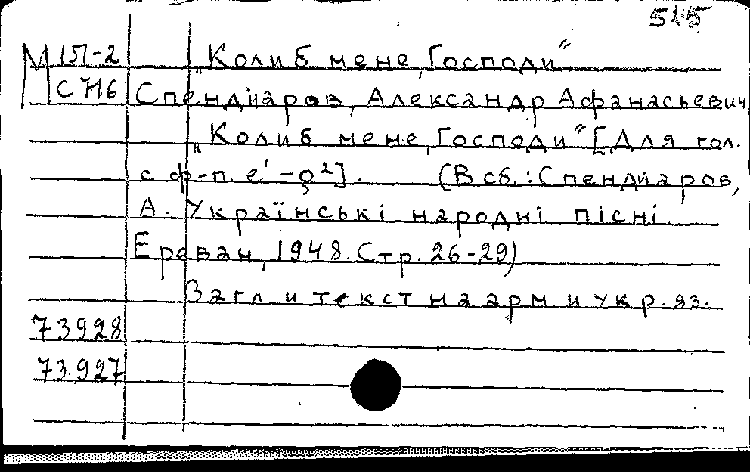 515
М 1П-2 „Колиб мене, Господи“
С716 Спендиаров, Александр Афанасьевич
„Колиб мене, Господи“ [Для гол.
с ф-п. e¹-g²]. (В сб.: Спендиаров,
А. Українські народні пісні.
Ереван, 1948. Стр. 26-29)
Загл и текст на арм и укр. яз.
73928
73927